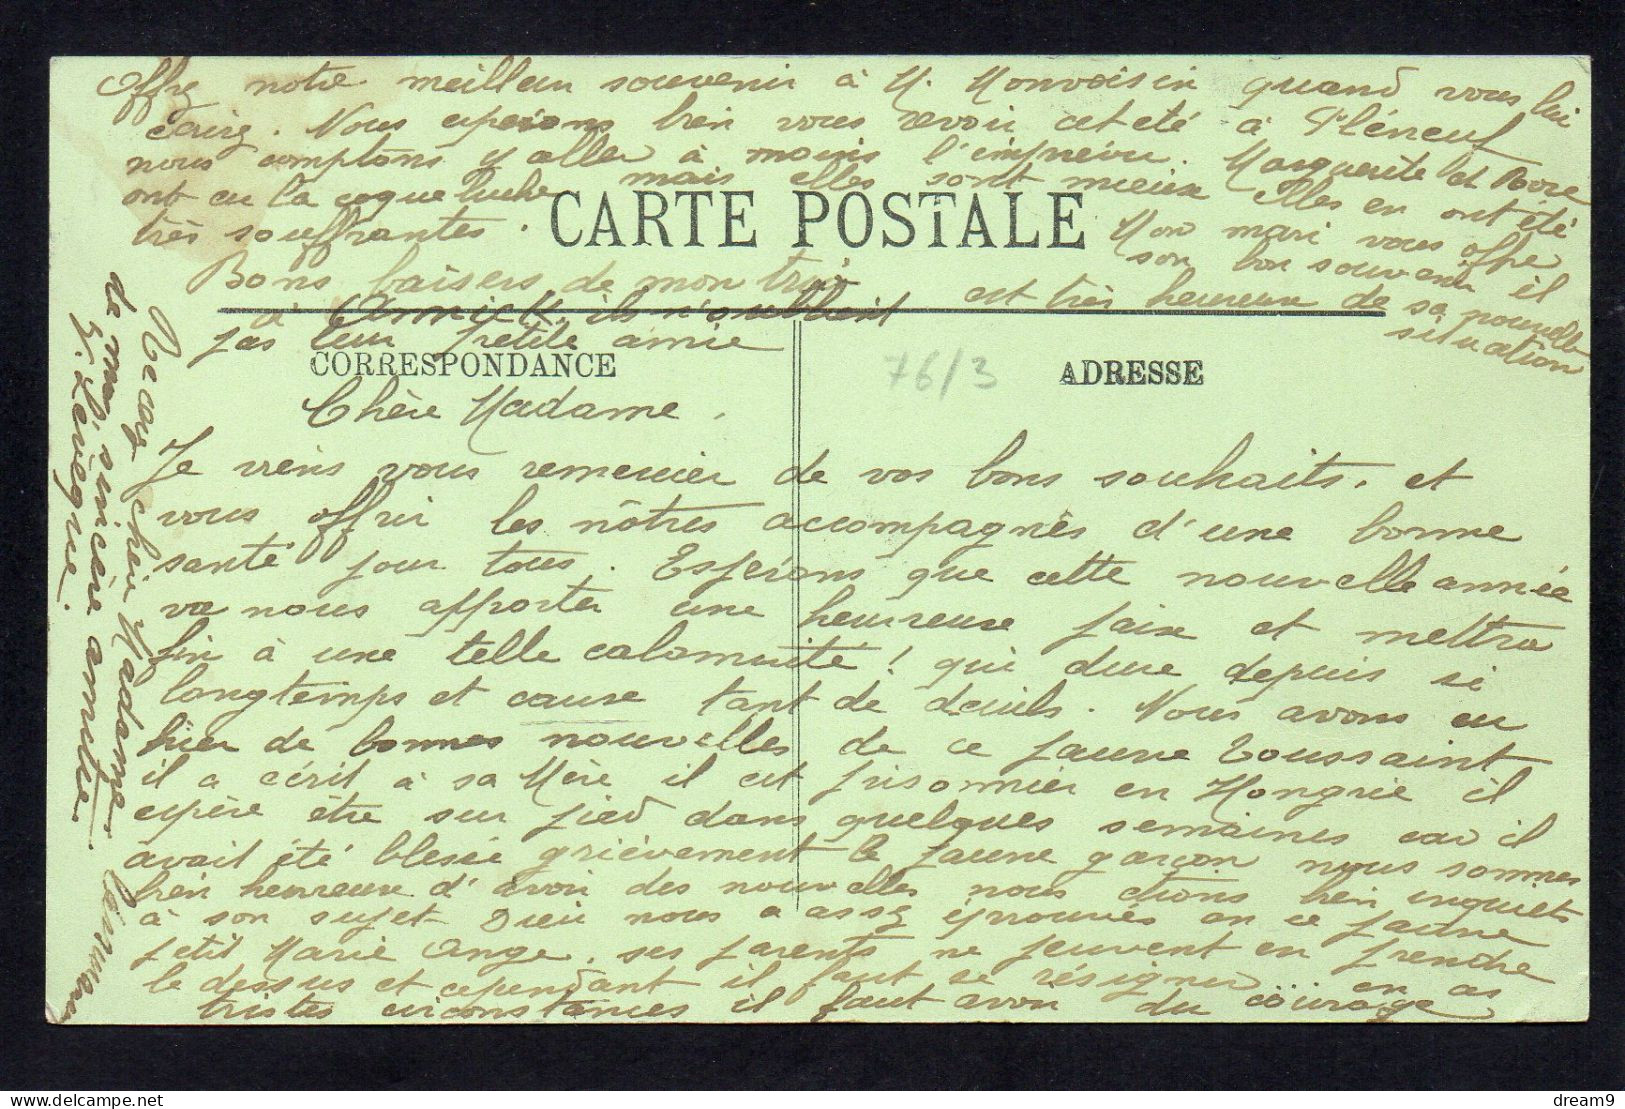 Offrez notre meilleur souvenir à M. Monvoisin quand vous lui
écrirez. Nous espérons bien vous revoir cet été à Pléneuf
nous comptons y aller à moins l'imprévu. Marguerite et Rose
ont eu la coqueluche mais elles sont mieux Elles en ont été
très souffrantes.
Mon mari vous offre
son bon souvenir il
est très heureux de sa nouvelle
situation
CARTE POSTALE
Bons baisers de mon trio
à Annick, ils n'oublient
pas leur petite amie
CORRESPONDANCE
76/3
ADRESSE
Chère Madame,
Je viens vous remercier de vos bons souhaits, et
vous offrir les nôtres accompagnés d'une bonne
santé pour tous. Espérons que cette nouvelle année
va nous apporter une heureuse paix et mettra
fin à une telle calamité! qui dure depuis si
longtemps et cause tant de deuils. Nous avons eu
hier de bonnes nouvelles de ce jeune Toussaint
il a écrit à sa Mère il est prisonnier en Hongrie il
espère être sur pied dans quelques semaines car il
avait été blessé grièvement le jeune garçon nous sommes
bien heureux d'avoir des nouvelles nous étions bien inquiets
à son sujet Dieu nous a assez éprouvés en ce jeune
petit Marie Ange, ses parents ne peuvent en prendre
le dessus et cependant il faut se résigner en as
tristes circonstances il faut avoir du courage
Recevez chère Madame
de ma sincère amitié.